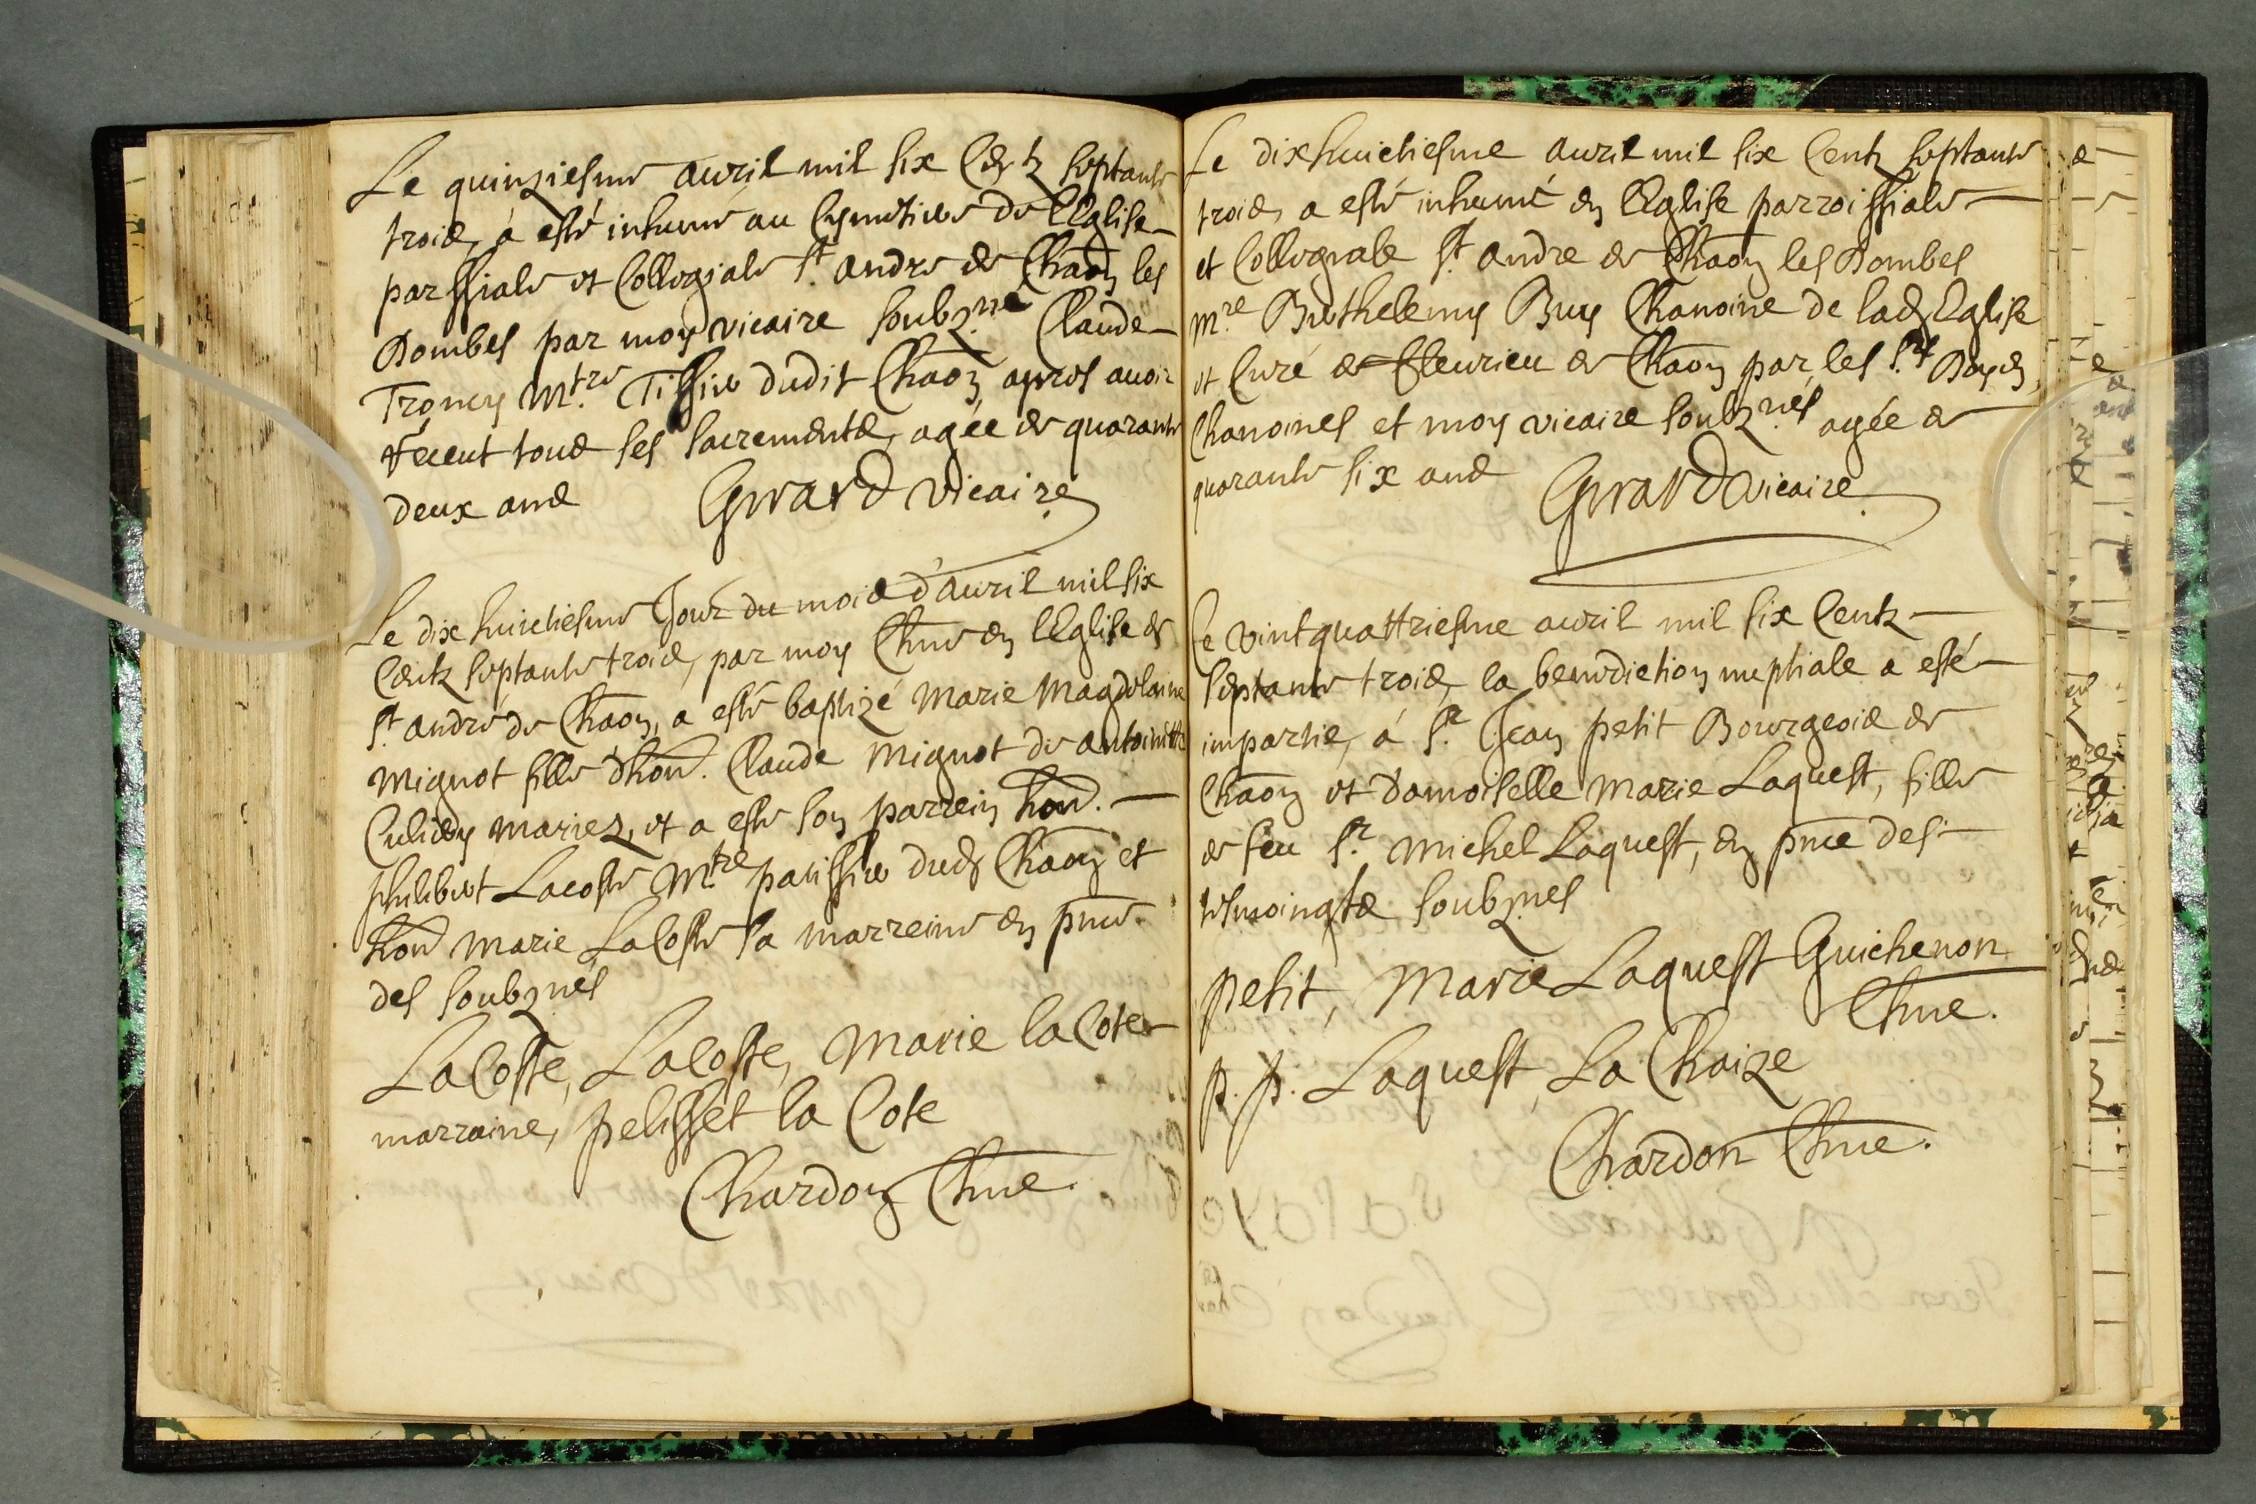 Le quinziesme auril mil six Centz septante
trois, a esté inhumé au Cymetiere de l'Eglise
parssiale et Collegiale St. andre de Chaõn les
Dombes par moy vicaire soubz.né Claude
Troncy M.tre Tissier dudit Chaõn apres auoir
receut tous ses sacrements, agée de quarante
deux ans Girard vicaire
Le dix huictiesme Jour du mois d'auril mil six
Centz septante trois, par moy Chne en l'Eglise de
St. andre de Chaõn, a esté baptizé Marie Magdelaine
Mignot fille d'hon. Claude Mignot de antoinette
mariez, et a esté son parrein hon.
philibert Lacoste M.tre patissier dud Chaõn et
hon Marie LaCoste sa marreine en pnce.
des soubznés
LaCoste, LaCoste, Marie la Coter
marraine, pelisset la Cote
Chardon Chne.
Le dixhuictiesme auril mil six Centz septante
trois, a esté inhumé en l'Eglise parroissiale
et Collegiale St. andre de Chaõn les Dombes
m.re Berthelemy Buy Chanoine de lad Eglise
et Curé de fleurieu de Chaõn par les Srs Doyen,
Chanoines et moy vicaire soubz.nés agée de
quarante six ans Girard vicaire
Le vintquattriesme auril mil six Centz
septante trois, la benediction nuptiale a esté
impartie, á Sr. Jean petit Bourgeois de
Chaõn et damoiselle Marie Laquest, fille
de feu Sr. Michel Laquest, en pnce des
tesmoingts soubznes
petit, Marie Laquest Guichenon
Chne.
p. p. Laquest, La Chaize
Chardon Chne.